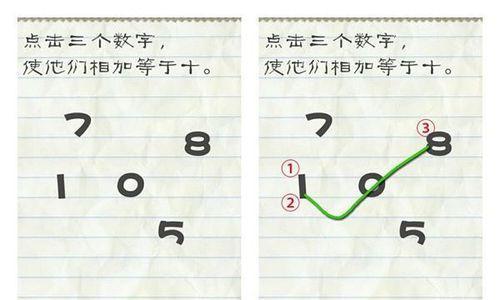 点击三个数字，
使他们相加等于十。
7
8
1 0
5
点击三个数字，
使他们相加等于十。
7
③
8
①
1 0
②
5